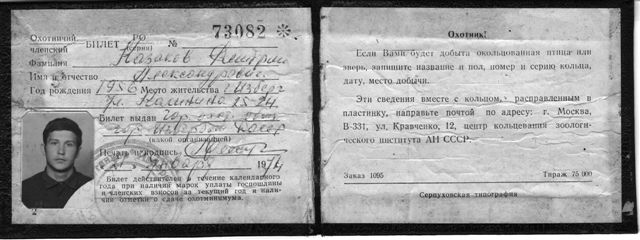 Охотничий
членский БИЛЕТ РО (серия) № 73082 *
Фамилия Казаков Дмитрий
Имя и отчество Александрович
Год рождения 1956 Место жительства г. Изберг
ул. Калинина 25-24
Билет выдан гор.
(какой организацией)
Печать и подпись
января 1974
Билет действителен в течение календарного
года при наличии марок уплаты госпошлины
и членских взносов за текущий год и
наличии отметки о сдаче охотминимума.
Охотник!
Если Вами будет добыта окольцованная птица или
зверь, запишите название и пол, номер и серию кольца,
дату, место добычи.
Эти сведения вместе с кольцом, расправленным в
пластинку, направьте почтой по адресу: г. Москва,
В-331, ул. Кравченко, 12, центр кольцевания зоологи-
ческого института АН СССР.
Заказ 1095 Тираж 75 000
Серпуховская типография